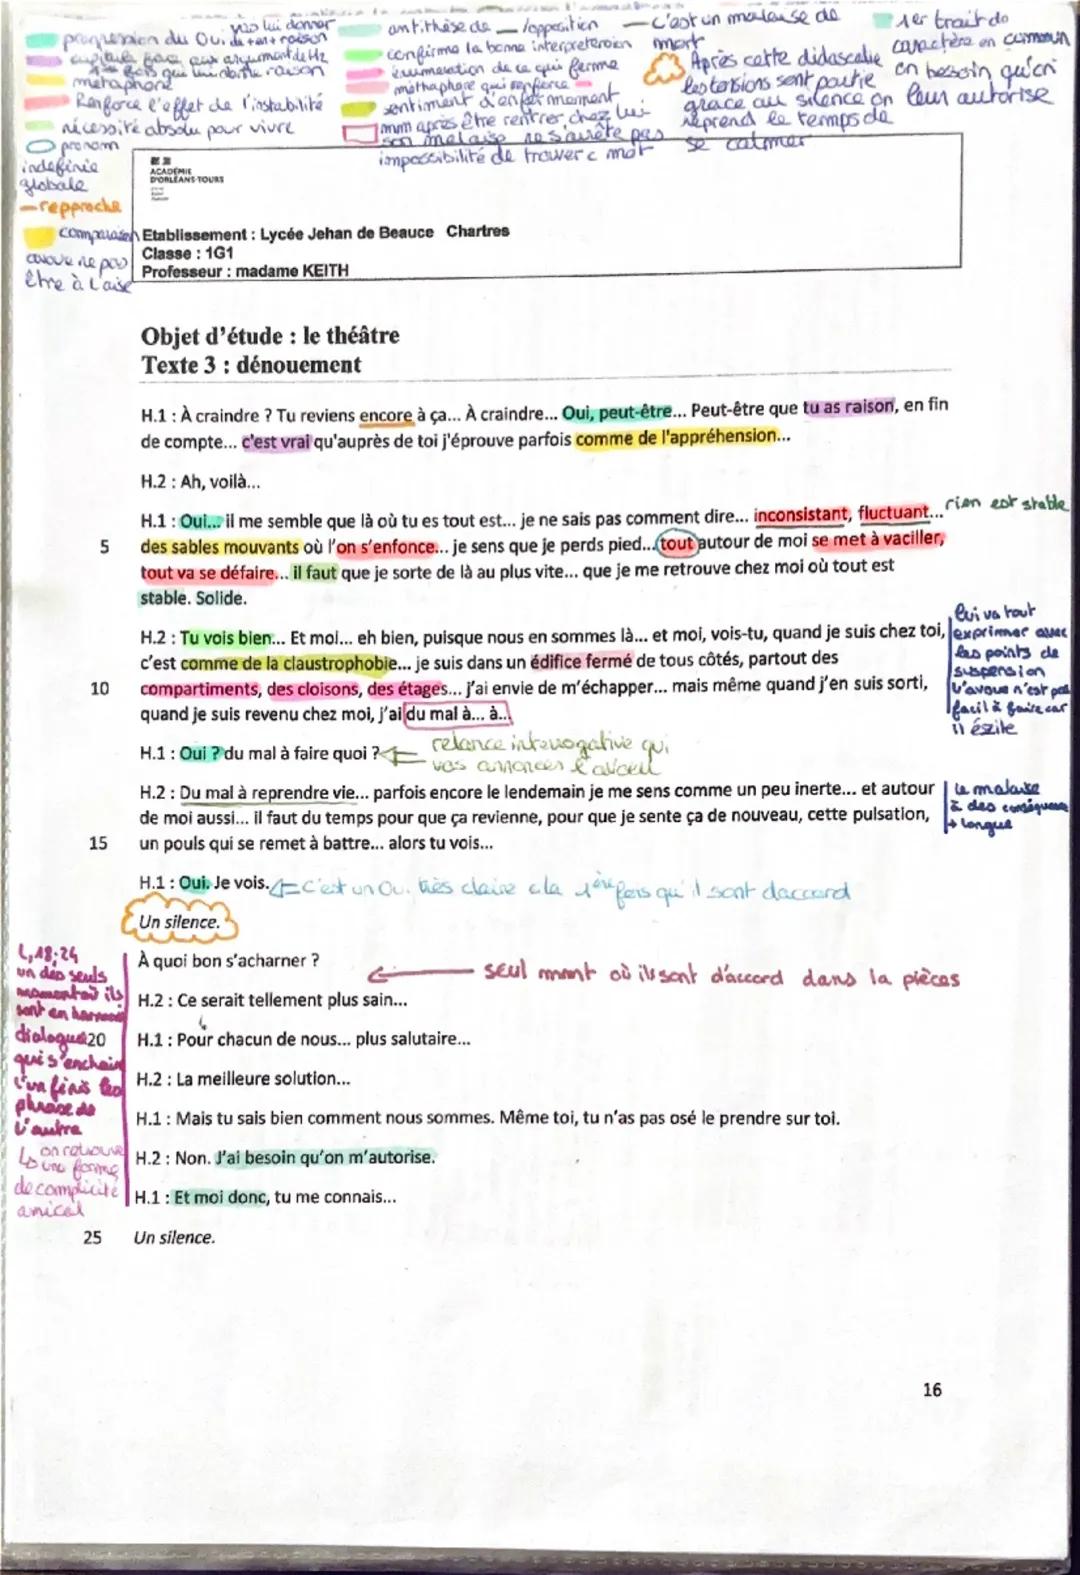 progression du Oui de + en + raison
vas lui donner
capitule face aux arguments de H2
1ère fois qui lui donne raison
métaphore
Renforce l'effet de l'instabilité
nécessité absolu pour vivre
pronom
indéfinie
globale
repproche
comparaison
avoue ne pas
être à l'aise
antithèse de /opposition
confirme la bonne interpretation
énumeration de ce qui ferme
méthaphore qui renforce
sentiment d'enfermement
mm après être rentrer chez lui
son malaise ne s'arrête pas
impossibilité de trouver mot
c'est un malaise de
mort
Après cette didascalie
les tensions sont partie
grace au silence on
reprend le temps de
se calmer
1er trait de
caractère en commun
on besoin qu'on
leur autorise
ACADÉMIE
D'ORLÉANS-TOURS
Etablissement : Lycée Jehan de Beauce Chartres
Classe : 1G1
Professeur : madame KEITH
Objet d'étude : le théâtre
Texte 3 : dénouement
H.1 : À craindre ? Tu reviens encore à ça... À craindre... Oui, peut-être... Peut-être que tu as raison, en fin
de compte... c'est vrai qu'auprès de toi j'éprouve parfois comme de l'appréhension...
H.2 : Ah, voilà...
H.1 : Oui... il me semble que là où tu es tout est... je ne sais pas comment dire... inconsistant, fluctuant... rien est stable
5 des sables mouvants où l'on s'enfonce... je sens que je perds pied... tout autour de moi se met à vaciller,
tout va se défaire... il faut que je sorte de là au plus vite... que je me retrouve chez moi où tout est
stable. Solide.
H.2 : Tu vois bien... Et moi... eh bien, puisque nous en sommes là... et moi, vois-tu, quand je suis chez toi,
c'est comme de la claustrophobie... je suis dans un édifice fermé de tous côtés, partout des
10 compartiments, des cloisons, des étages... j'ai envie de m'échapper... mais même quand j'en suis sorti,
quand je suis revenu chez moi, j'ai du mal à... à...
lui va tout
exprimer avec
les points de
suspension
l'avoue n'est pas
facil à faire car
il ésite
H.1 : Oui ? du mal à faire quoi ?
relance interrogative qui
vas annoncer l'aveu
H.2 : Du mal à reprendre vie... parfois encore le lendemain je me sens comme un peu inerte... et autour
de moi aussi... il faut du temps pour que ça revienne, pour que je sente ça de nouveau, cette pulsation,
15 un pouls qui se remet à battre... alors tu vois...
le malaise
à des conséquence
longue
H.1 : Oui. Je vois. c'est un Oui très claire c la 1ère fois qu'il sont daccord
Un silence.
À quoi bon s'acharner ?
seul mmnt où ils sont d'accord dans la pièces
H.2 : Ce serait tellement plus sain...
20 H.1 : Pour chacun de nous... plus salutaire...
H.2 : La meilleure solution...
H.1 : Mais tu sais bien comment nous sommes. Même toi, tu n'as pas osé le prendre sur toi.
H.2 : Non. J'ai besoin qu'on m'autorise.
H.1 : Et moi donc, tu me connais...
25 Un silence.
L,18-24
un des seuls
moment où ils
sont en harmonie
dialogue
qui s'enchaine
l'un finis les
phrase de
l'autre
on retrouve
une forme
de complicité
amical
16